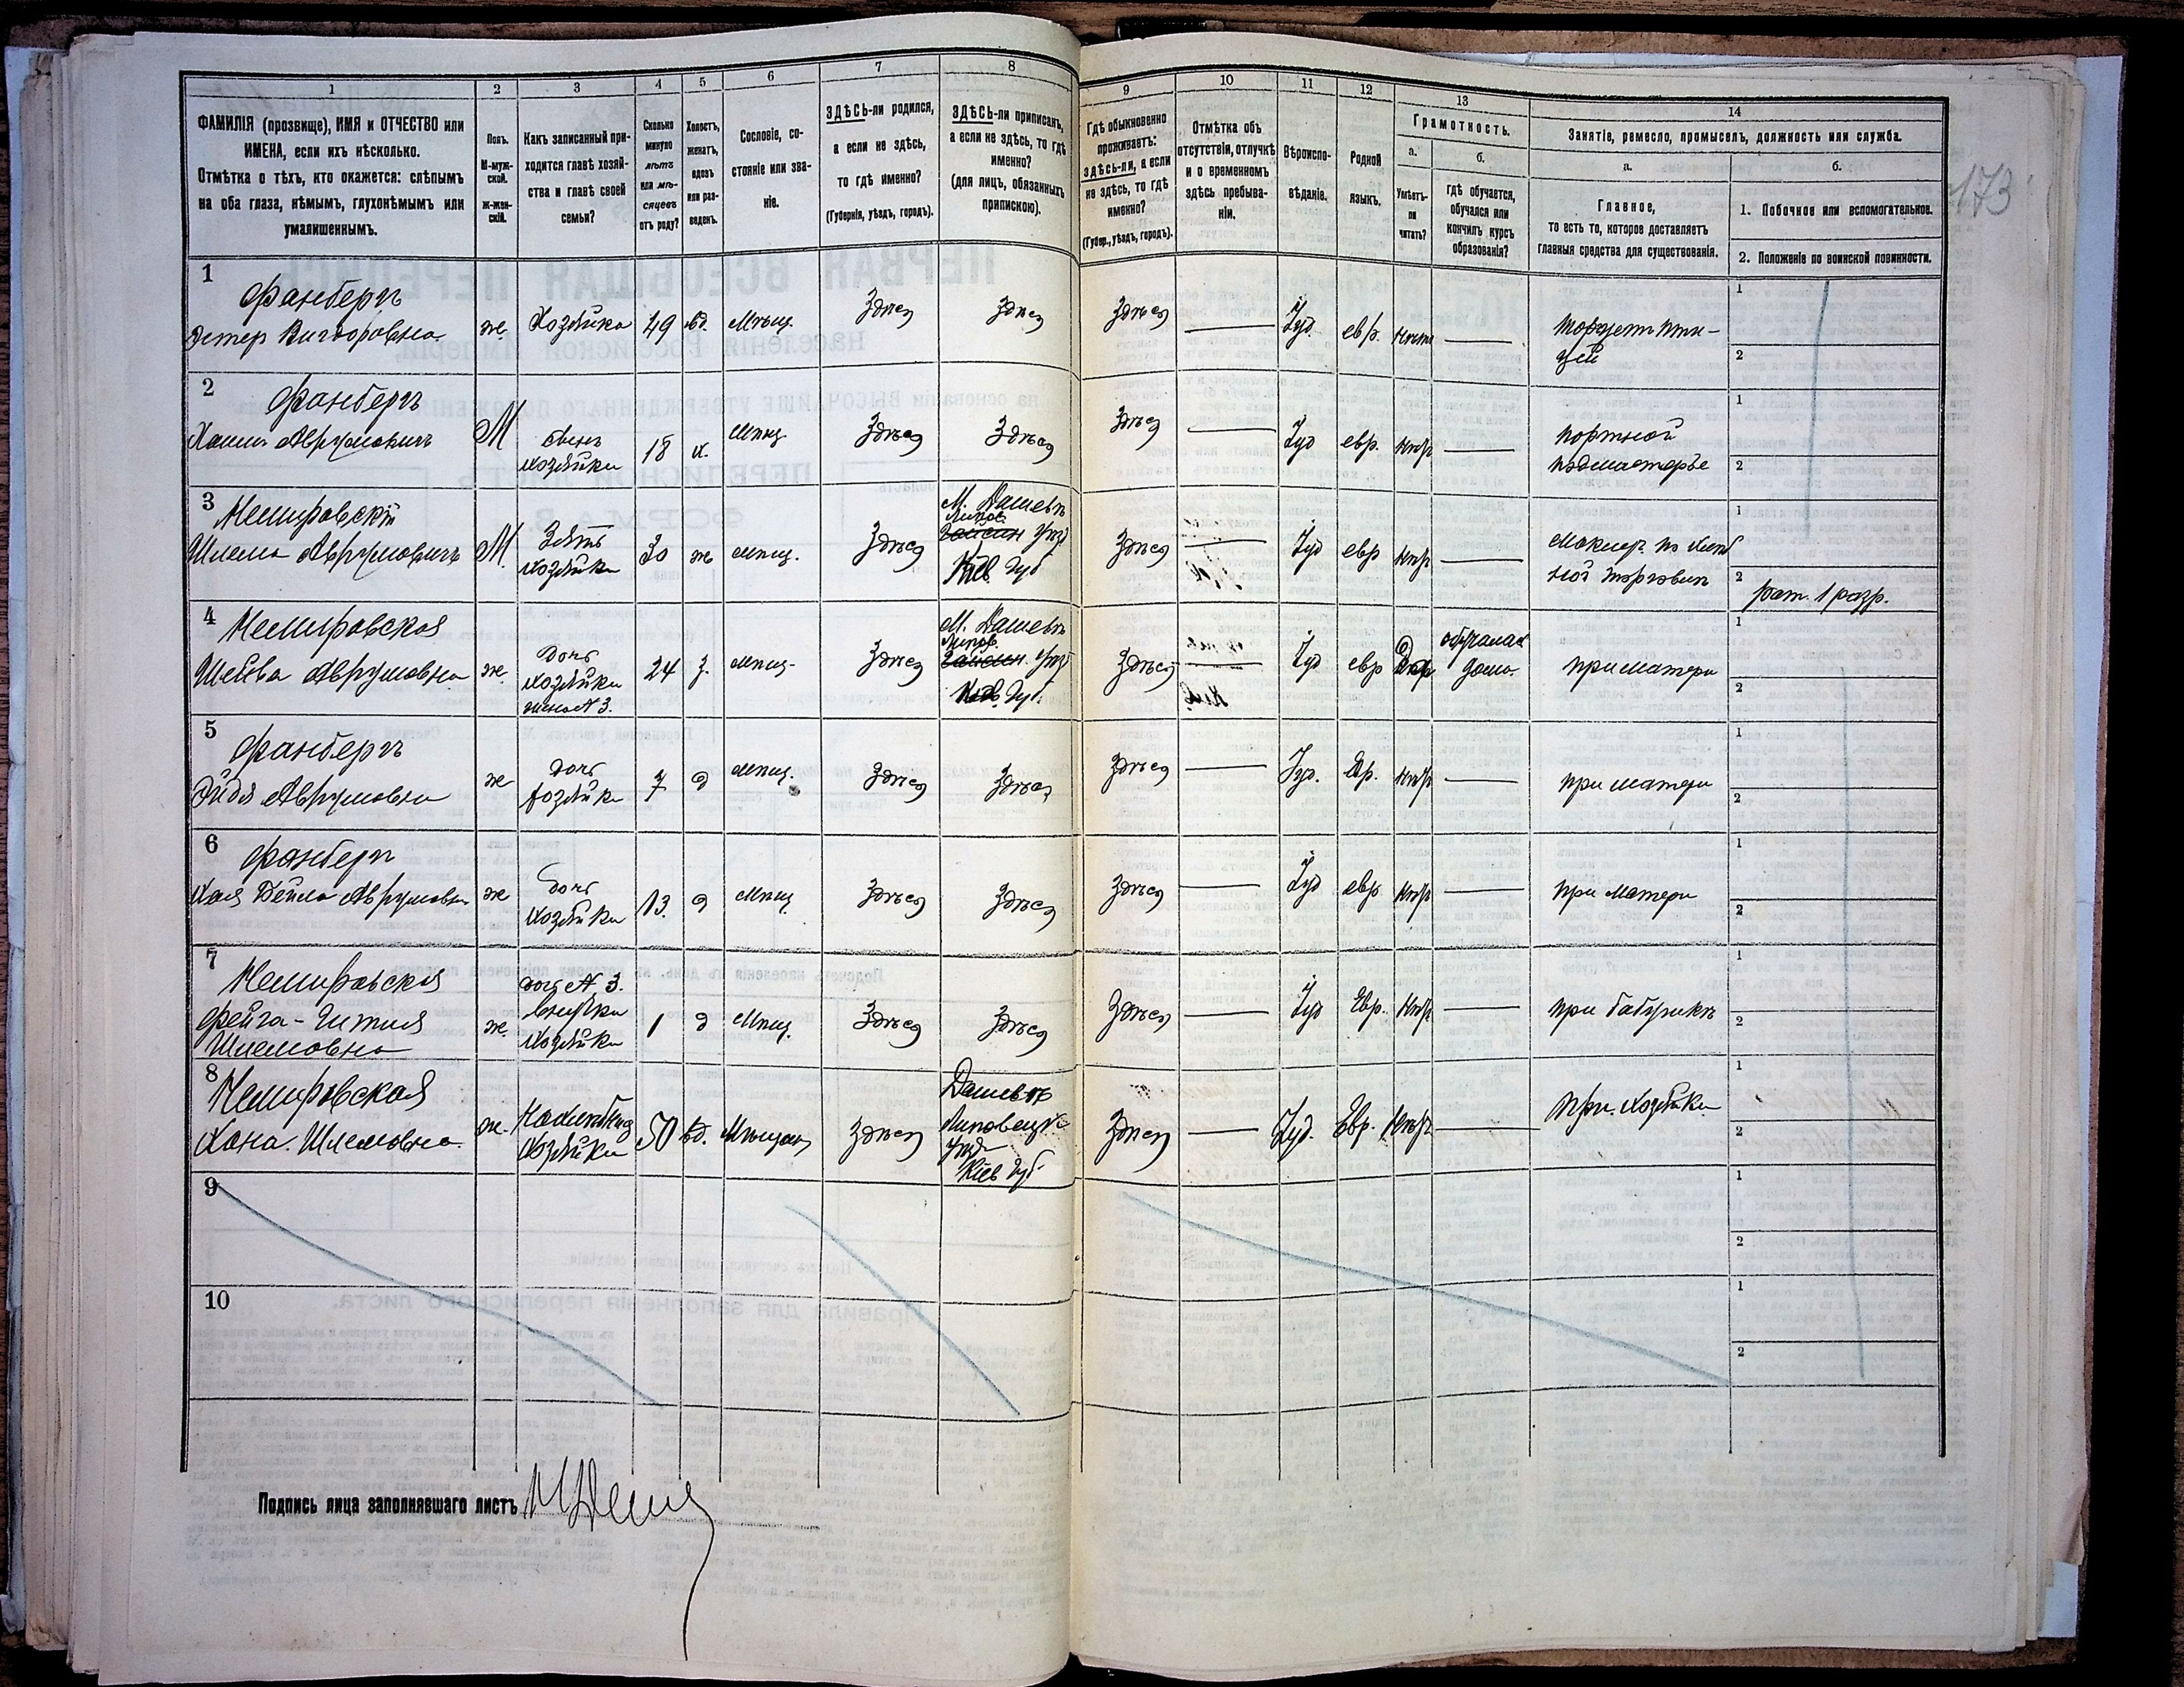 1
2
3
4
5
6
7
8
ФАМИЛІЯ (прозвище), ИМЯ и ОТЧЕСТВО или
ИМЕНА, если ихъ нѣсколько.
Отмѣтка о тѣхъ, кто окажется: слѣпымъ
на оба глаза, нѣмымъ, глухонѣмымъ или
умалишеннымъ.
Полъ.
М-муж-
ской.
ж-жен-
скій.
Какъ записанный при-
ходится главѣ хозяй-
ства и главѣ своей
семьи?
Сколько
минуло
лѣтъ
или мѣ-
сяцевъ
отъ роду?
Холостъ,
женатъ,
вдовъ
или раз-
веденъ.
Сословіе, со-
стояніе или зва-
ніе.
ЗДѢСЬ-ли родился,
а если не здѣсь,
то гдѣ именно?
(Губернія, уѣздъ, городъ).
ЗДѢСЬ-ли приписанъ,
а если не здѣсь, то гдѣ
именно?
(для лицъ, обязанныхъ
припискою).
9
10
11
12
13
14
Гдѣ обыкновенно
проживаетъ:
здѣсь-ли, а если
не здѣсь, то гдѣ
именно?
(Губер., уѣздъ, городъ).
Отмѣтка объ
отсутствіи, отлучкѣ
и о временномъ
здѣсь пребыва-
ніи.
Вѣроиспо-
вѣданіе.
Родной
языкъ.
Грамотность.
а.
б.
Умѣетъ-
ли
читать?
гдѣ обучается,
обучался или
кончилъ курсъ
образованія?
Занятіе, ремесло, промыселъ, должность или служба.
а.
б.
Главное,
то есть то, которое доставляетъ
главныя средства для существованія.
1. Побочное или вспомогательное.
2. Положеніе по воинской повинности.
173
1
Фанбергъ
Эстер Вигдоровна
ж.
Хозяйка
49
вд.
Мѣщ.
Здѣсь
Здѣсь
Здѣсь
Іуд.
евр.
нѣтъ
торгует пти-
цей
1
2
2
Фанбергъ
Хаим Аврумовичъ
М
сынъ
хозяйки
18
х.
мѣщ
Здѣсь
Здѣсь
Здѣсь
Іуд
евр.
нѣтъ
портной
подмастерье
1
2
3
Немировскій
Шлема Аврумовичъ
М.
Зять
хозяйки
30
ж
мѣщ.
Здѣсь
М. Дашевъ
Липов.
Гайсин Уѣзд
Кіев Губ
Здѣсь
Іуд
евр
нѣтъ
маклер по хлѣб
ной торговлѣ
1
2
рат. 1 разр.
4
Немировская
Шейва Аврумовна
ж.
дочь
хозяйки
жена N 3.
24
з.
мѣщ.
Здѣсь
М. Дашевъ
Липов.
Гайсин. Уѣзд
Кіев. Губ.
Здѣсь
Іуд
евр
обучалась
дома.
при матери
1
2
5
Фанбергъ
Эйдя Аврумовна
ж
дочь
хозяйки
7
д
мѣщ.
Здѣсь
Здѣсь
Здѣсь
Іуд.
Евр.
нѣтъ
при матери
1
2
6
Фанбергъ
Хая Бейла Аврумовна
ж
дочь
хозяйки
13.
д
мѣщ.
Здѣсь
Здѣсь
Здѣсь
Іуд
евр
нѣтъ
при матери
1
2
7
Немировская
Фейга-Гитля
Шлемовна
ж.
дочь N 3.
внучка
хозяйки
1
д
мѣщ.
Здѣсь
Здѣсь
Здѣсь
Іуд
Евр.
нѣтъ
при бабушкѣ
1
2
8
Немировская
Хана Шлемовна
ж.
Нахлѣбница
хозяйки
50
вд.
Здѣсь
Дашевъ
Липовецк
Уѣзд
Кіев Губ
Здѣсь
Іуд.
Евр.
нѣтъ
при хозяйки
1
2
9
1
2
10
1
2
Подпись лица заполнявшаго листъ